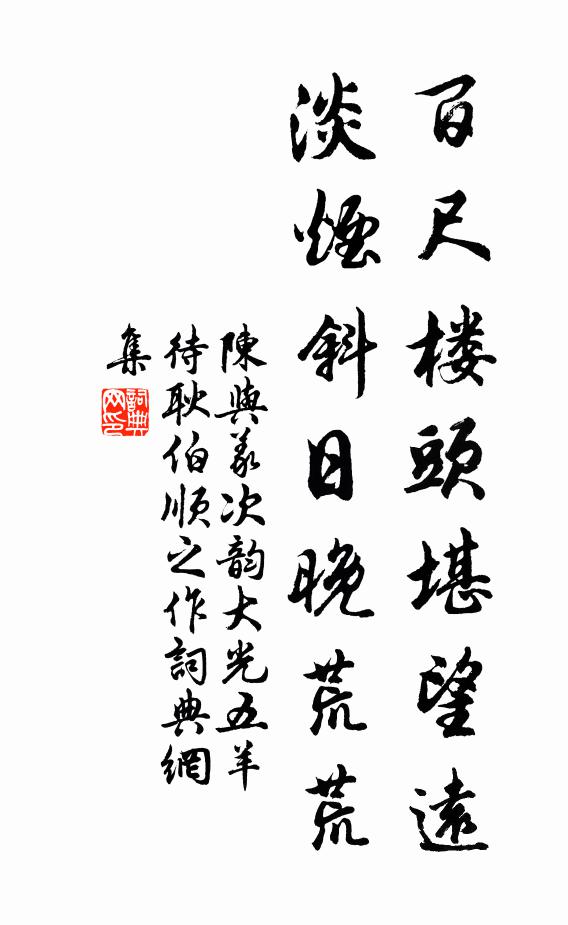 百尺楼頭堪望遠
淡煙斜日晚荒荒
陳與義次韵大光五羊
待耿伯順之作詞典網
集
詞典网印